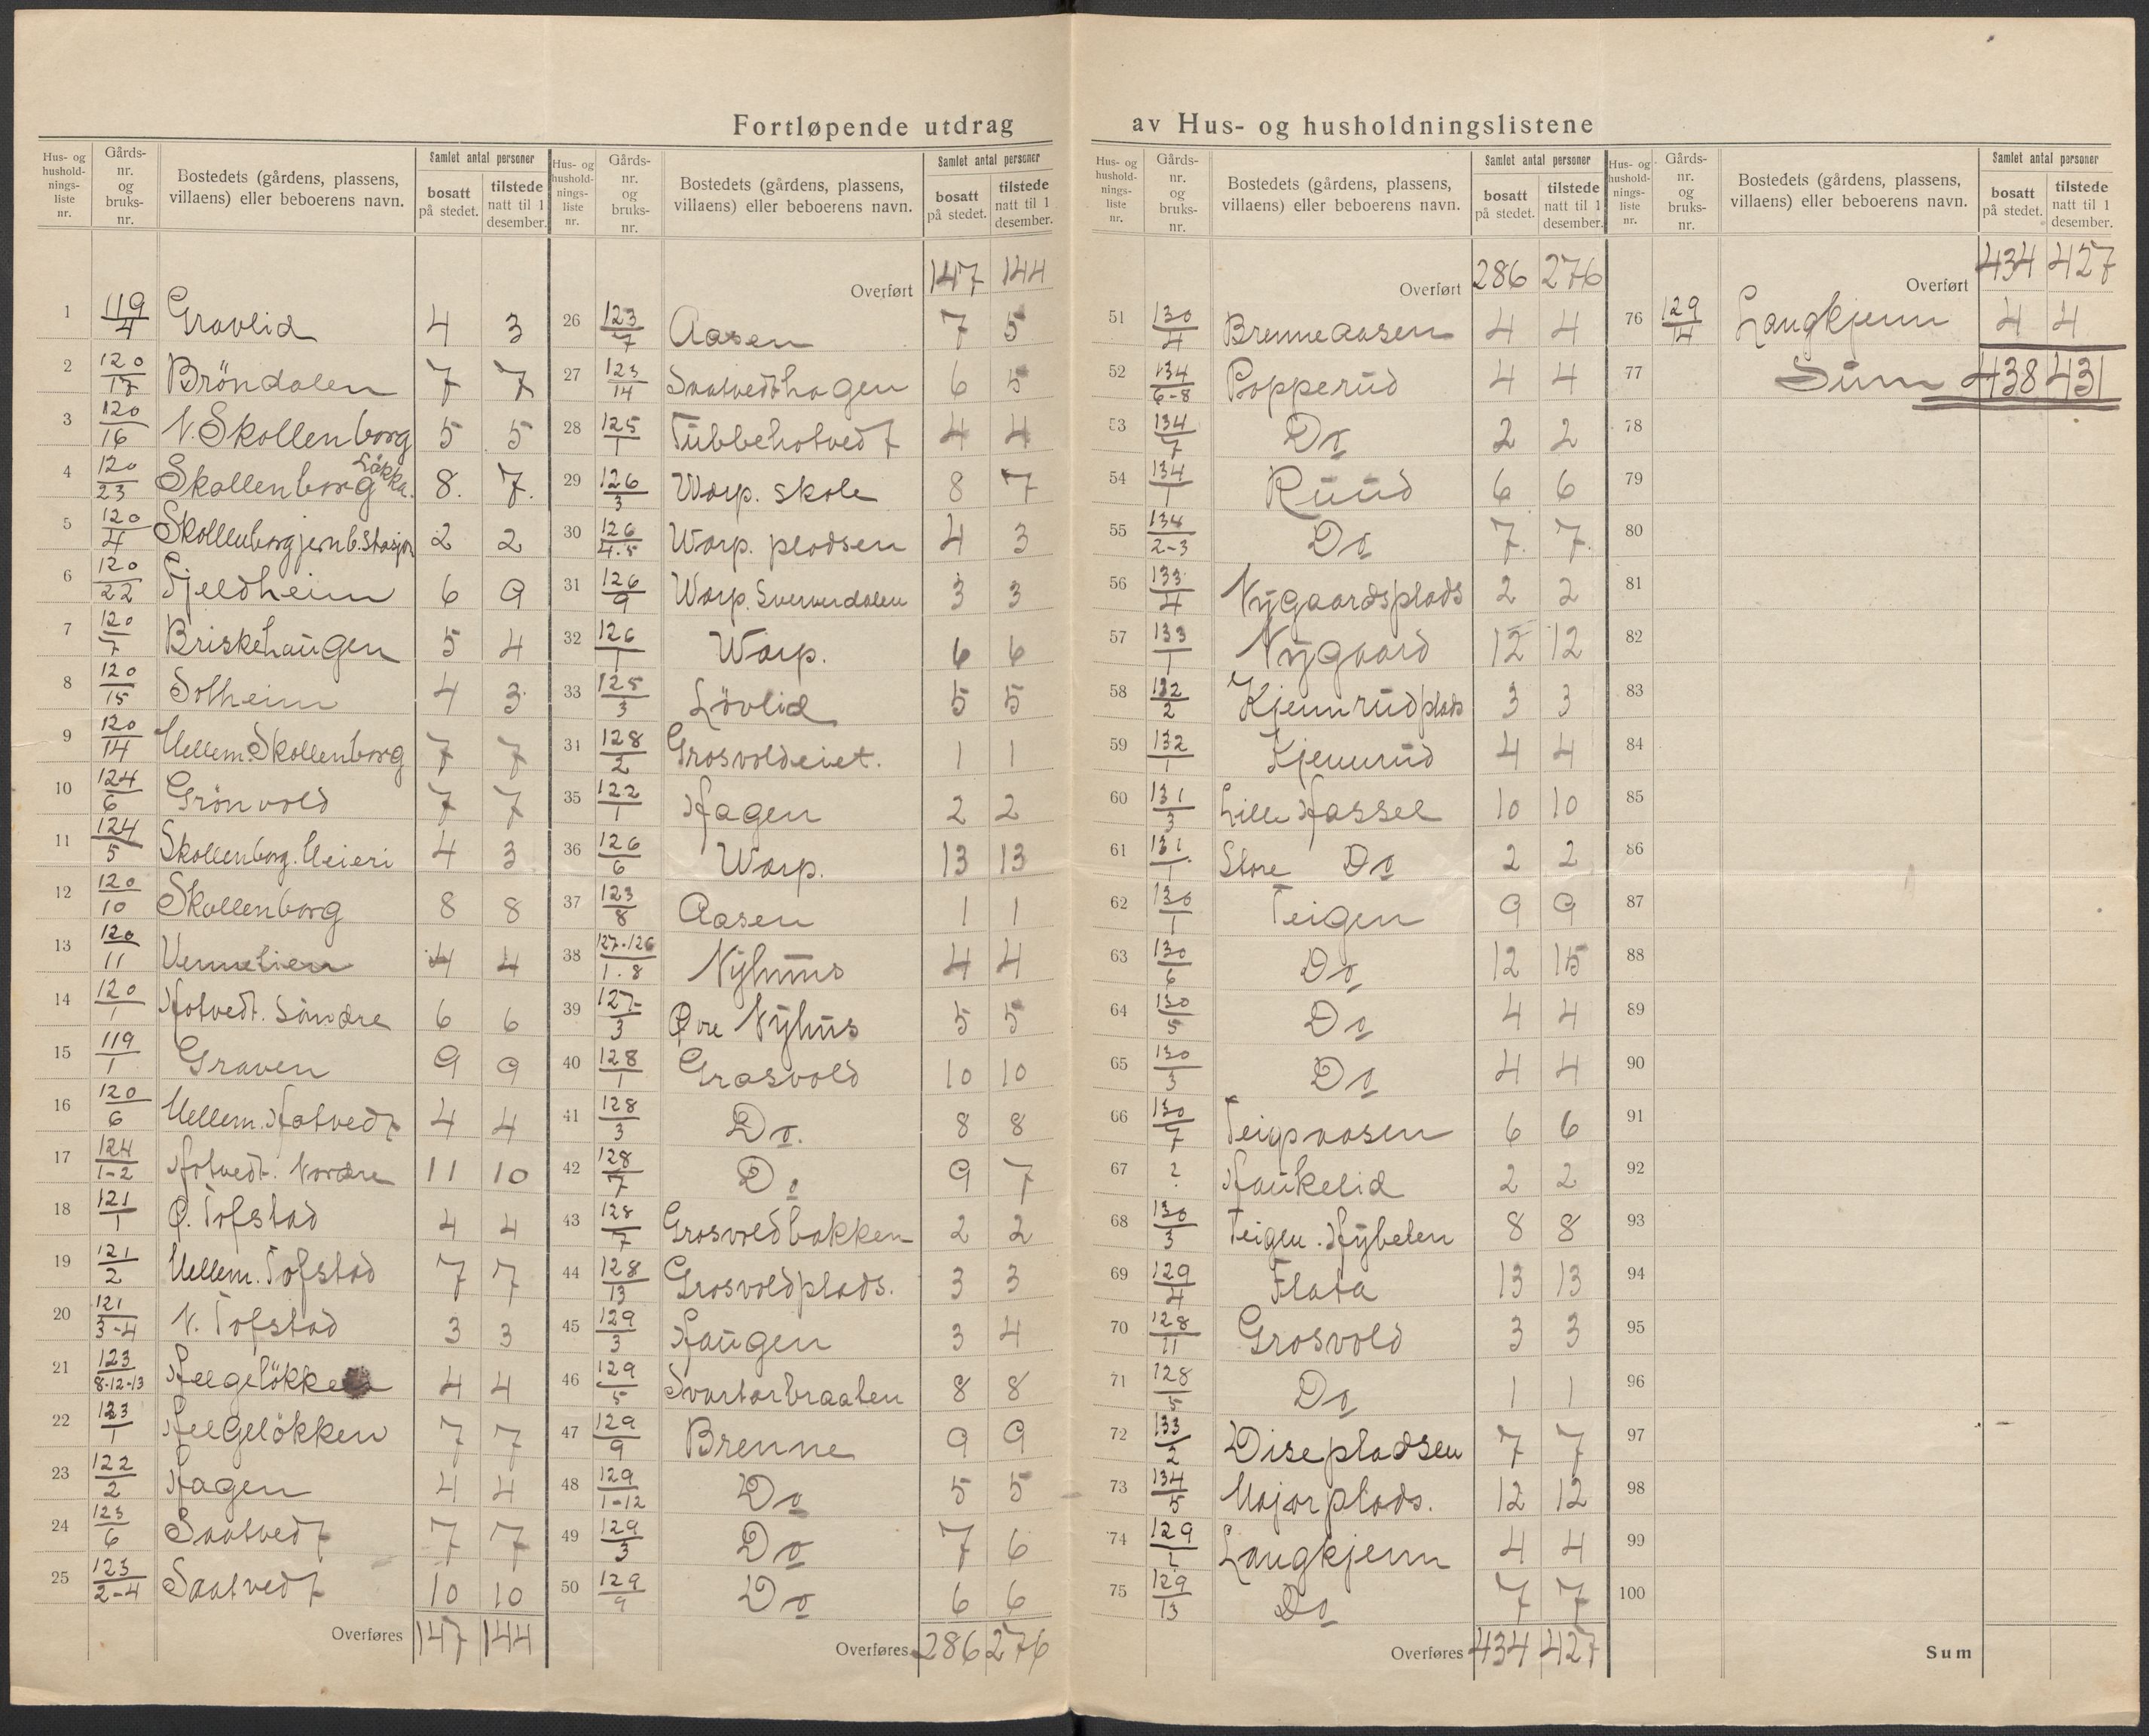 Fortløpende utdrag av Hus- og husholdningslistene
Hus- og hushold-nings-liste nr. | Gårds-nr. og bruks-nr. | Bostedets (gårdens, plassens, villaens) eller beboerens navn. | Samlet antal personer | bosatt på stedet. | tilstede natt til 1 desember.
1 119/4 Gravlid 4 3
2 120/17 Bröndalen 7 7
3 120/16 N. Skollenborg 5 5
4 120/23 Skollenborg Løkka. 8. 7.
5 120/4 Skollenborg jernb. stasjon 2 2
6 120/22 Fjeldheim 6 9
7 120/7 Briskehaugen 5 4
8 120/15 Solheim 4 3
9 120/14 Mellem. Skollenborg 7 7
10 124/6 Grönvold 7 7
11 124/5 Skollenborg. Meieri 4 3
12 120/10 Skollenborg 8 8
13 120/11 Vennelien 4 4
14 120/1 Hotvedt. Söndre 6 6
15 119/1 Graven 9 9
16 120/6 Mellem. Hotvedt 4 4
17 124/1-2 Hotvedt. Nordre 11 10
18 121/1 Ø. Tofstad 4 4
19 121/2 Mellem. Tofstad 7 7
20 121/3-4 N. Tofstad 3 3
21 123/8-12-13 Helgeløkken 4 4
22 123/1 Helgelökken 7 7
23 122/2 Hagen 4 4
24 123/6 Saatvedt 7 7
25 123/2-4 Saatvedt 10 10
Overføres 147 144
Hus- og hushold-nings-liste nr. | Gårds-nr. og bruks-nr. | Bostedets (gårdens, plassens, villaens) eller beboerens navn. | Samlet antal personer | bosatt på stedet. | tilstede natt til 1 desember.
Overført 147 144
26 123/7 Aasen 7 5
27 123/14 Saatvedthagen 6 5
28 125/1 Tubbehotvedt 4 4
29 126/3 Worp. skole 8 7
30 126/4.5 Worp. pladsen 4 3
31 126/9 Worp. Svenerdalen 3 3
32 126/1 Worp. 6 6
33 125/3 Lövlid 5 5
31 128/2 Grosvoldeiet. 1 1
35 122/1 Hagen 2 2
36 126/6 Worp. 13 13
37 123/8 Aasen 1 1
38 127-126/1.8 Nyhus 4 4
39 127-/3 Øvre Nyhus 5 5
40 128/1 Grosvold 10 10
41 128/3 Do. 8 8
42 128/7 Do 9 7
43 128/7 Grosvoldbakken 2 2
44 128/13 Grosvoldplads. 3 3
45 129/3 Haugen 3 4
46 129/5 Svartorbraaten 8 8
47 129/9 Brenne 9 9
48 129/1-12 Do 5 5
49 129/3 Do 7 6
50 129/9 Do 6 6
Overføres 286 276
Hus- og hushold-nings-liste nr. | Gårds-nr. og bruks-nr. | Bostedets (gårdens, plassens, villaens) eller beboerens navn. | Samlet antal personer | bosatt på stedet. | tilstede natt til 1 desember.
Overført 286 276
51 130/4 Brenneaasen 4 4
52 134/6-8 Popperud 4 4
53 134/7 Do 2 2
54 134/1 Ruud 6 6
55 134/2-3 Do 7. 7.
56 133/4 Nygaardsplads 2 2
57 133/1 Nygaard 12 12
58 132/2 Kjennrudplads 3 3
59 132/1 Kjennrud 4 4
60 131/3 Lille Hassel 10 10
61 131/1 Store Do 2 2
62 130/1 Teigen 9 9
63 130/6 Do 12 15
64 130/5 Do 4 4
65 130/3 Do 4 4
66 130/7 Teigsaasen 6 6
67 ? Haukelid 2 2
68 130/3 Teigen. Hybelen 8 8
69 129/4 Flata 13 13
70 128/11 Grosvold 3 3
71 128/5 Do 1 1
72 133/2 Disepladsen 7 7
73 134/5 Majorplads. 12 12
74 129/2 Langkjenn 4 4
75 129/13 Do 7 7
Overføres 434 427
Hus- og hushold-nings-liste nr. | Gårds-nr. og bruks-nr. | Bostedets (gårdens, plassens, villaens) eller beboerens navn. | Samlet antal personer | bosatt på stedet. | tilstede natt til 1 desember.
Overført 434 427
76 129/14 Langkjenn 4 4
77 Sum 438 431
78
79
80
81
82
83
84
85
86
87
88
89
90
91
92
93
94
95
96
97
98
99
100
Sum